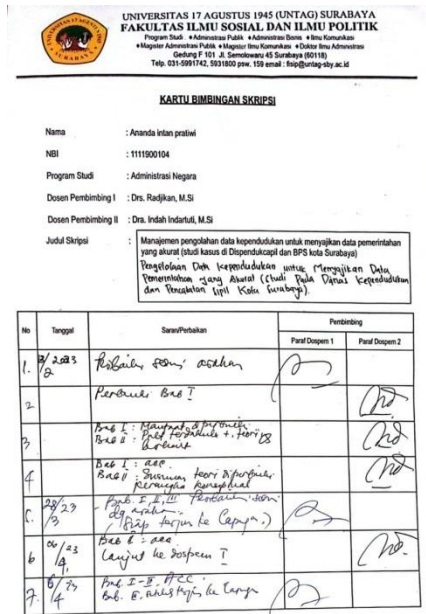 UNIVERSITAS 17 AGUSTUS 1945 (UNTAG) SURABAYA
FAKULTAS ILMU SOSIAL DAN ILMU POLITIK
Program Studi : ♦Administrasi Publik ♦Administrasi Bisnis ♦Ilmu Komunikasi
♦Magister Administrasi Publik ♦Magister Ilmu Komunikasi ♦Doktor Ilmu Administrasi
Gedung F 101 Jl. Semolowaru 45 Surabaya (60118)
Telp. 031-5991742, 5931800 psw. 159 email : fisip@untag-sby.ac.id
KARTU BIMBINGAN SKRIPSI
Nama : Ananda intan pratiwi
NBI : 1111900104
Program Studi : Administrasi Negara
Dosen Pembimbing I : Drs. Radjikan, M.Si
Dosen Pembimbing II : Dra. Indah Indartuti, M.Si
Judul Skripsi : Manajemen pengolahan data kependudukan untuk menyajikan data pemerintahan
yang akurat (studi kasus di Dispendukcapil dan BPS kota Surabaya)
Pengelolaan Data Kependudukan untuk Menyajikan Data
Pemerintahan yang Akurat (Studi Pada Dinas Kependudukan
dan Pencatatan Sipil Kota Surabaya).
No Tanggal Saran/Perbaikan Pembimbing
Paraf Dospem 1 Paraf Dospem 2
1. Perbaiki sesuai arahan
2 Perbaiki Bab I
3 Bab I : Manfaat diperbaiki
Bab II : teori
4 Bab I : acc
Bab II : Susunan teori diperbaiki
Kerangka konseptual
5. 28/23 3 Bab. I, II, III Perbaiki sesuai
dg arahan.
(Siap terjun ke Lapgn.)
6 06/23 4 acc
Lanjut ke dospem I
7. 6/23 4 Bab. I-III. ACC.